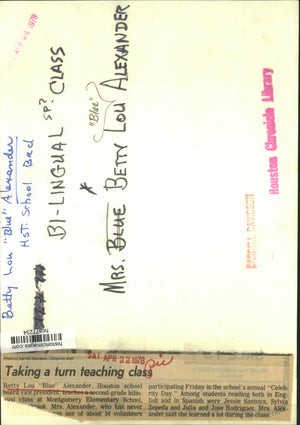 APR 26 1978
Houston Chronicle Library
DARRELL DAVIDSON
SP?
BI-LINGUAL CLASS
"Blue"
MRS. BLUE BETTY LOU ALEXANDER
Betty Lou "Blue" Alexander
Hst. School Brd
historicimages.com
SAT APR 22 1978
pic
Taking a turn teaching class
Betty Lou "Blue" Alexander, Houston school
board vice president, teaches a second-grade bilin-
gual class at Montgomery Elementary School,
Mrs. Alexander, who has never
was one of about 14 volunteers
participating Friday in the school's annual "Celeb-
rity Day." Among students reading both in Eng-
lish and in Spanish were Jessie Santoya, Sylvia
Zepeda and Julia and Jose Rodriguez. Mrs. Alex-
ander said she learned a lot during the class.